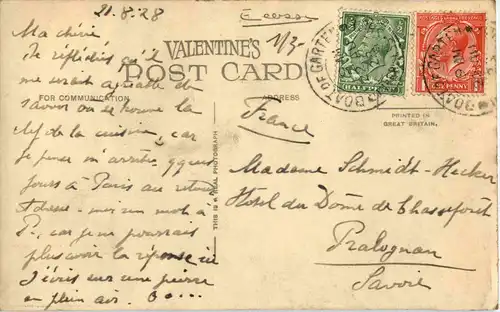 21.8.28
Ecosse
1/3
VALENTINE'S
POST CARD
FOR COMMUNICATION
ADDRESS
HALFPENNY
ONE PENNY
BOAT OF GARTEN
BOAT OF GARTEN
PRINTED IN
GREAT BRITAIN.
THIS IS A REAL PHOTOGRAPH
Ma chérie
J'ai réfléchis qu'il
me serait agréable de
savoir où se trouve la
clef de la cuisine, car
je pense m'arrêter qques
jours à Paris au retour
Adresse-moi un mot à
P., car je ne pourrais
plus avoir la réponse ici
J'écris sur une pierre
en plein air.
France
Madame Schmidt-Hecker
Hotel du Dome de Chasseforêt
Pralognan
Savoie